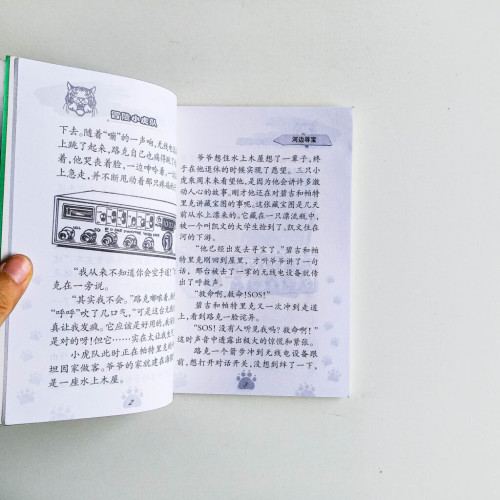 冒险小虎队
下去。随着“嘣”的一声响,无线电
上跳了起来,路克自己也痛得
着,他哭丧着脸,一边哼哼着,一
上急走,并不断甩动着那只疼
“我从来不知道你会空手道!”
克在一旁说。
“其实我不会。”路克嘟哝着,
“呼呼”吹了几口气,“可是这台无
真让我发疯。它应该是好用的,我
是对的呀!但它……实在太让我
小虎队此时正在帕特里克
坦因家做客。爷爷的家就建在
是一座水上木屋。
2
河边寻宝
爷爷想住水上木屋想了一辈子,终
于在他退休的时候实现了愿望。三只小
虎来周末来看望他,是因为他会讲许多激
动人心的故事,刚才他还在对碧吉和帕特
里克讲藏宝图的事呢。这张藏宝图是几天
前从水上漂来的。它藏在一只漂流瓶中,
被一个叫凯文的大学生捡到了,凯文住在
河的下游。
“他已经出发去寻宝了。”碧吉和帕
特里克刚回到屋里,才听爷爷讲了一句
话,那台被击了一掌的无线电设备就传出
了呼救声。
“救命啊,救命!SOS!”
碧吉和帕特里克又一次冲到走道
上,看到路克一脸诧异。
“SOS!没有人听见我吗?救命啊!”
这时声音中透露出极大的惊慌和紧张。
路克一个箭步冲到无线电设备跟
前,想打开对话开关,没想到绊了一下,
3